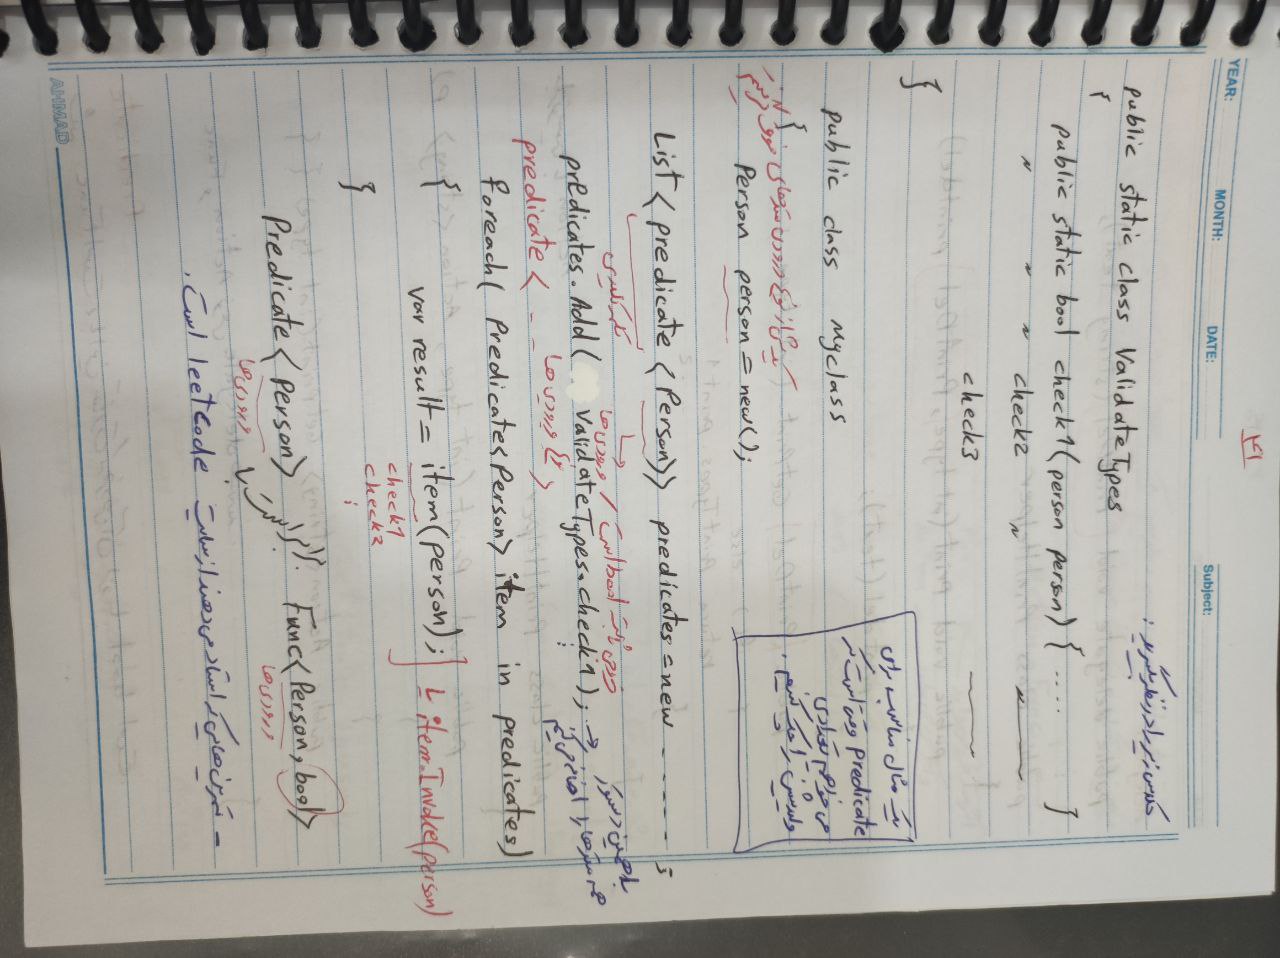 ۴۱
YEAR:
MONTH:
DATE:
Subject:
کلاس زیر را در نظر بگیرید :
public static class ValidateTypes
{
public static bool check1(person person) { .... }
〃 〃 〃 check2 〃
check3
}
یک مثال مناسب برای
predicate وقتی است که
می خواهیم تعدادی
ولیدیشن را چک کنیم .
public class Myclass
{
یک شی از نوع ورودی متدهای فوق
Person person = new();
List < predicate < Person>> predicates = new ------ ;
کلمه کلیدی
ورودی ها / خروجی ثابت bool است
predicates.Add( ValidateTypes.check1); →
با همین دستور
همه متدها را اضافه می کنیم
predicate < - - نوع ورودی ها >
foreach( Predicate<Person> item in predicates)
{
var result = item(person);
item.Invoke(person)
check1
check2
}
Predicate < Person> برابر است با Func< Person, bool>
ورودی ها
ورودی ها
- تمرین هایی که استاد می دهند از سایت leetcode است .
AHMAD